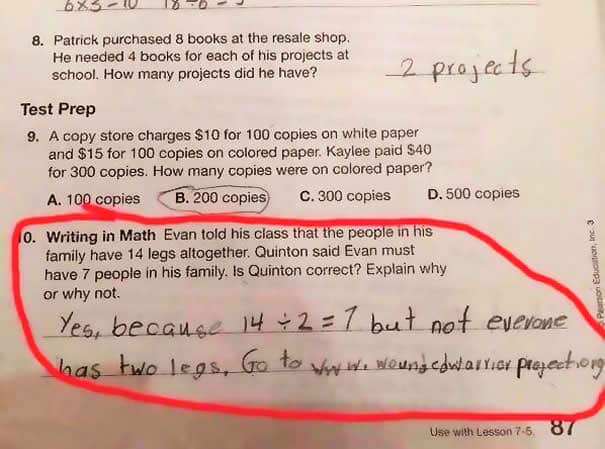 6x3-10
8. Patrick purchased 8 books at the resale shop.
He needed 4 books for each of his projects at
school. How many projects did he have?
2 projects
Test Prep
9. A copy store charges $10 for 100 copies on white paper
and $15 for 100 copies on colored paper. Kaylee paid $40
for 300 copies. How many copies were on colored paper?
A. 100 copies B. 200 copies C. 300 copies D. 500 copies
10. Writing in Math Evan told his class that the people in his
family have 14 legs altogether. Quinton said Evan must
have 7 people in his family. Is Quinton correct? Explain why
or why not.
Yes, because 14 ÷ 2 = 7 but not everone
has two legs, Go to www.woundedwarriorproject.org
Pearson Education, Inc. 3
Use with Lesson 7-5. 87